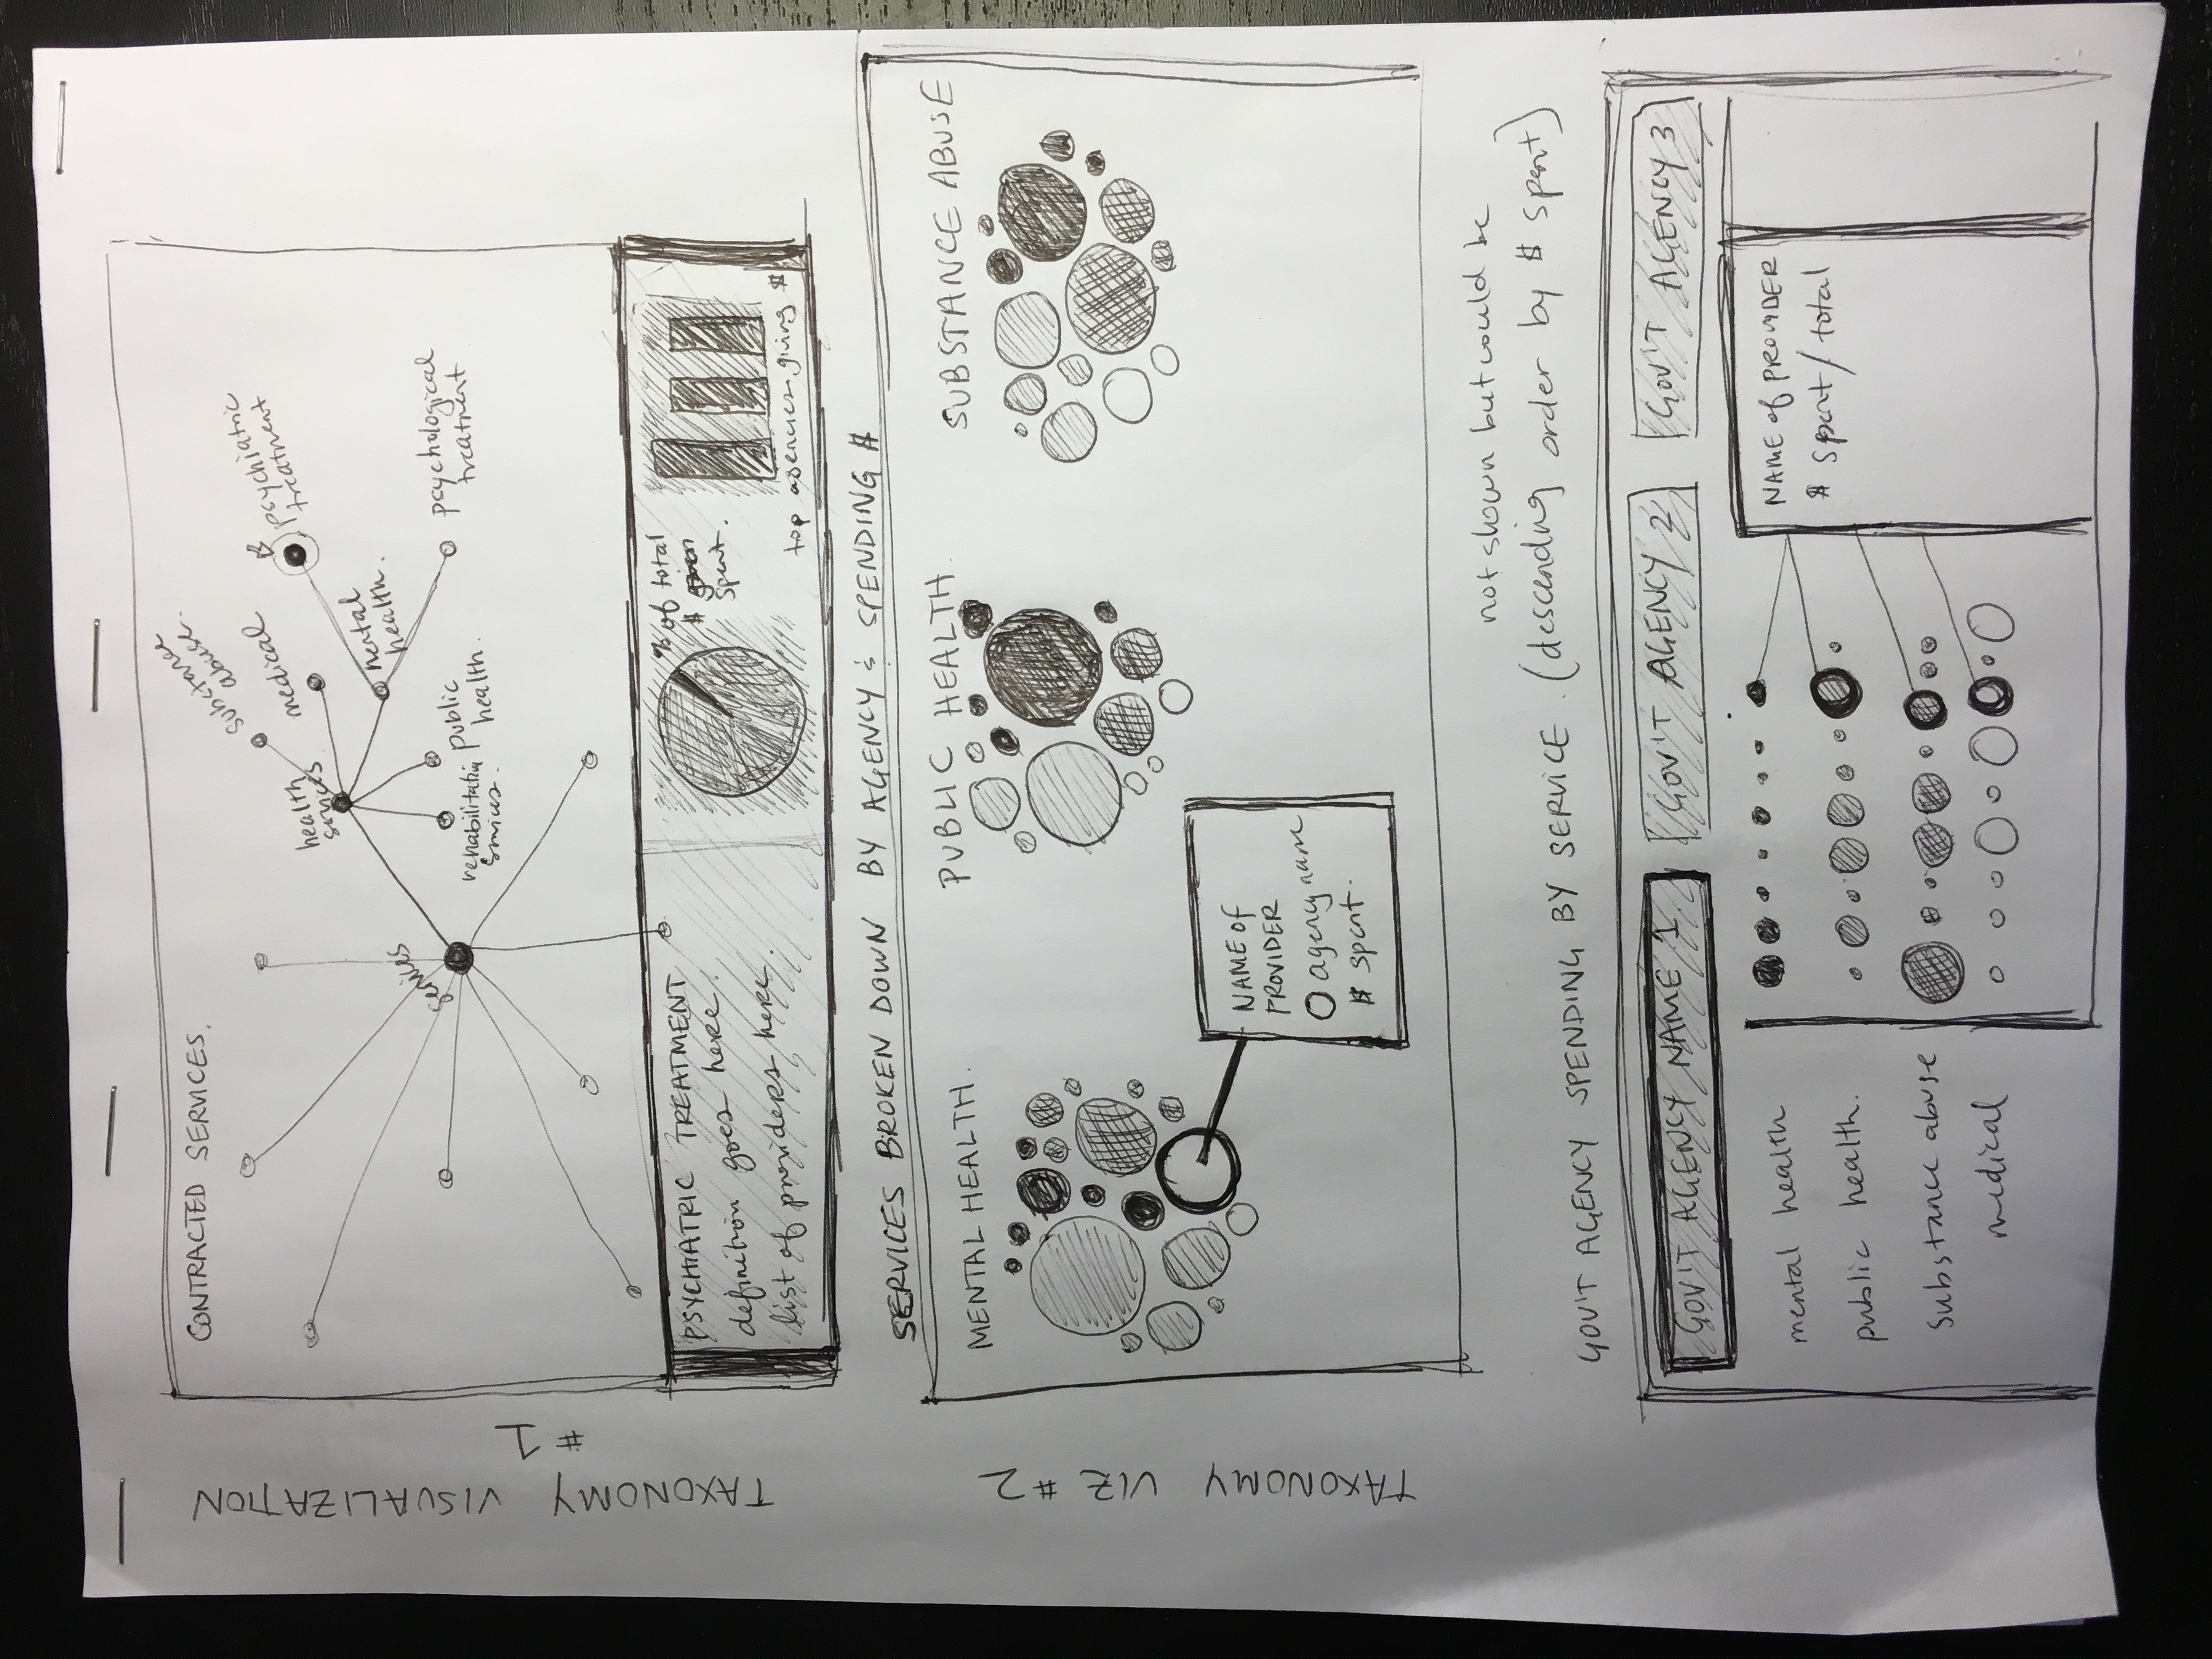 TAXONOMY VISUALIZATION
#1
CONTRACTED SERVICES.
services
health
services.
substance
abuse.
medical
mental
health.
psychiatric
treatment
psychological
treatment
public
health.
rehabilitation
services.
PSYCHIATRIC TREATMENT
definition goes here.
list of providers here.
% of total
$
spent.
top agencies giving $
TAXONOMY VIZ #2
SERVICES BROKEN DOWN BY AGENCY & SPENDING $
MENTAL HEALTH.
PUBLIC HEALTH.
SUBSTANCE ABUSE
NAME of
PROVIDER
agency name
$ spent.
not shown but could be
GOV'T AGENCY SPENDING BY SERVICE. (descending order by $ spent)
GOV'T AGENCY NAME 1.
GOV'T AGENCY 2
GOV'T AGENCY 3
mental health
public health.
substance abuse
medical
NAME of PROVIDER
$ spent / total